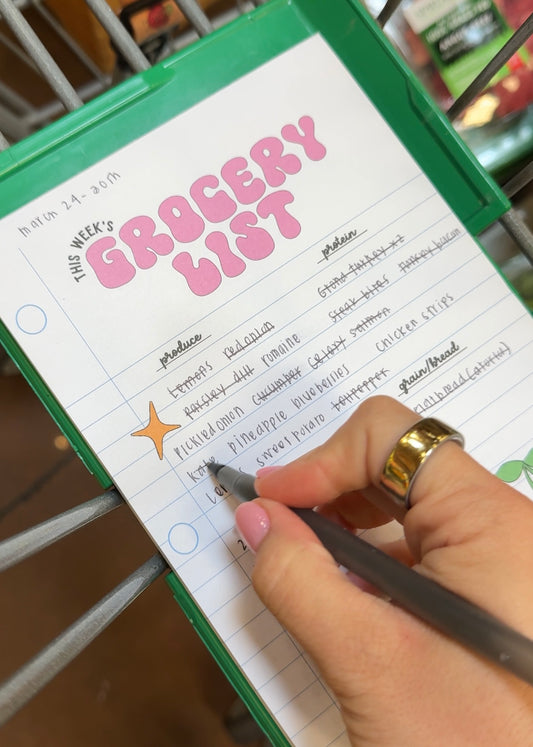 march 24-30th
THIS WEEK'S
GROCERY
LIST
produce
Lemons red onion
parsley dill romaine
pickled onion cucumber celery
kale pineapple blueberries
sweet potato
protein
turkey x2 turkey bacon
steak bites salmon
chicken strips
grain/bread
flatbread
2